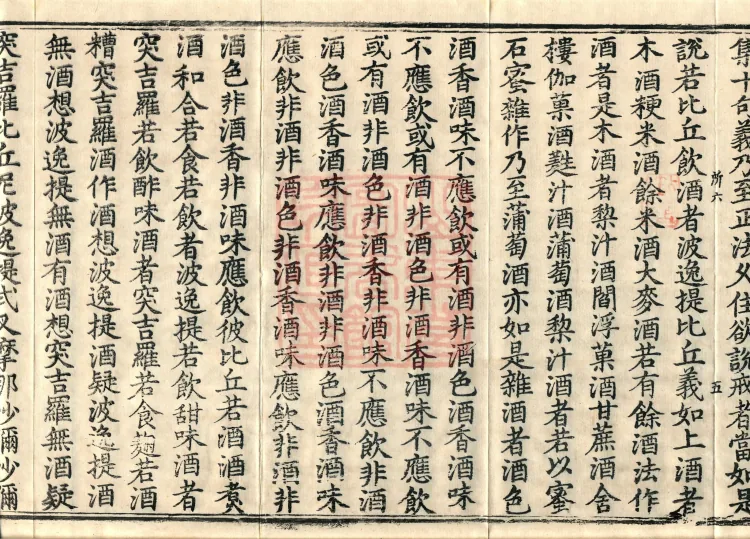 集十句義乃至正法久住欲說戒者當如是
所六 五
說若比丘飲酒者波逸提比丘義如上酒者
木酒粳米酒餘米酒大麥酒若有餘酒法作
酒者是木酒者梨汁酒閻浮菓酒甘蔗酒舍
樓伽菓酒甤汁酒蒲萄酒梨汁酒者若以蜜
石蜜雜作乃至蒲萄酒亦如是雜酒者酒色
酒香酒味不應飲或有酒非酒色酒香酒味
不應飲或有酒非酒色非酒香酒味不應飲
或有酒非酒色非酒香非酒味不應飲非酒
酒色酒香酒味應飲非酒非酒色酒香酒味
應飲非酒非酒色非酒香酒味應飲非酒非
酒色非酒香非酒味應飲彼比丘若酒酒煮
酒和合若食若飲者波逸提若飲甜味酒者
突吉羅若飲酢味酒者突吉羅若食麴若酒
糟突吉羅酒作酒想波逸提酒疑波逸提酒
無酒想波逸提無酒有酒想突吉羅無酒疑
突吉羅比丘尼波逸提式叉摩那沙彌沙彌